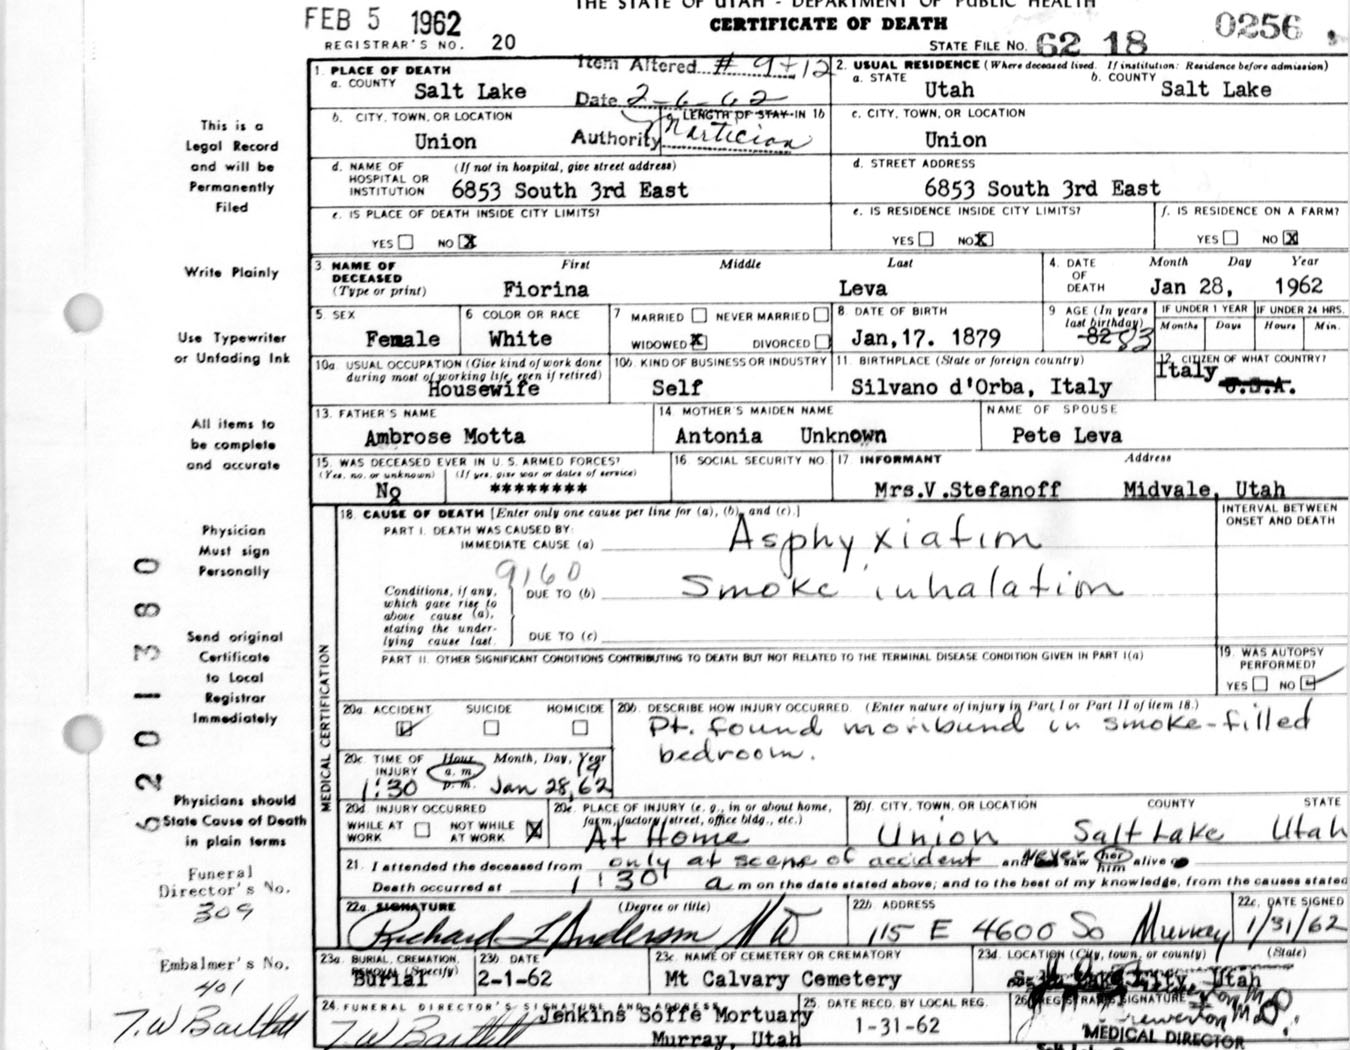 THE STATE OF UTAH - DEPARTMENT OF PUBLIC HEALTH
FEB 5 1962
CERTIFICATE OF DEATH
0256
REGISTRAR'S NO. 20
STATE FILE NO. 62 18
Item Altered # 9+12
Date 2-6-62
Authority Mortician
1. PLACE OF DEATH
a. COUNTY Salt Lake
2. USUAL RESIDENCE (Where deceased lived. If institution: Residence before admission)
a. STATE Utah
b. COUNTY Salt Lake
b. CITY, TOWN, OR LOCATION Union
c. LENGTH OF STAY IN 1b
c. CITY, TOWN, OR LOCATION Union
d. NAME OF HOSPITAL OR INSTITUTION (If not in hospital, give street address) 6853 South 3rd East
d. STREET ADDRESS 6853 South 3rd East
e. IS PLACE OF DEATH INSIDE CITY LIMITS?
YES NO X
e. IS RESIDENCE INSIDE CITY LIMITS?
YES NO X
f. IS RESIDENCE ON A FARM?
YES NO X
3. NAME OF DECEASED (Type or print)
First Middle Last
Fiorina Leva
4. DATE OF DEATH
Month Day Year
Jan 28, 1962
5. SEX Female
6. COLOR OR RACE White
7 MARRIED NEVER MARRIED
WIDOWED X DIVORCED
8. DATE OF BIRTH Jan,17. 1879
9 AGE (In years last birthday) 82 83
IF UNDER 1 YEAR Months Days
IF UNDER 24 HRS. Hours Min.
10a. USUAL OCCUPATION (Give kind of work done during most of working life, even if retired) Housewife
10b. KIND OF BUSINESS OR INDUSTRY Self
11. BIRTHPLACE (State or foreign country) Silvano d'Orba, Italy
12. CITIZEN OF WHAT COUNTRY? Italy U.S.A.
13. FATHER'S NAME Ambrose Motta
14. MOTHER'S MAIDEN NAME Antonia Unknown
NAME OF SPOUSE Pete Leva
15. WAS DECEASED EVER IN U. S. ARMED FORCES?
(Yes, no, or unknown) (If yes, give war or dates of service)
No ********
16. SOCIAL SECURITY NO
17. INFORMANT Address
Mrs.V.Stefanoff Midvale, Utah
18. CAUSE OF DEATH [Enter only one cause per line for (a), (b), and (c).]
INTERVAL BETWEEN ONSET AND DEATH
PART I. DEATH WAS CAUSED BY:
IMMEDIATE CAUSE (a) Asphyxiation
9160
Conditions, if any, which gave rise to above cause (a), stating the underlying cause last.
DUE TO (b) Smoke inhalation
DUE TO (c)
PART II. OTHER SIGNIFICANT CONDITIONS CONTRIBUTING TO DEATH BUT NOT RELATED TO THE TERMINAL DISEASE CONDITION GIVEN IN PART I(a)
19. WAS AUTOPSY PERFORMED?
YES NO
20a. ACCIDENT SUICIDE HOMICIDE
20b. DESCRIBE HOW INJURY OCCURRED. (Enter nature of injury in Part I or Part II of item 18.)
Pt. found moribund in smoke-filled
bedroom.
20c. TIME OF INJURY Hour Month, Day, Year
a. m.
p. m.
1:30 Jan 28, 1962
20d. INJURY OCCURRED
WHILE AT WORK NOT WHILE AT WORK X
20e. PLACE OF INJURY (e. g., in or about home, farm, factory, street, office bldg., etc.)
At Home
20f. CITY, TOWN, OR LOCATION COUNTY STATE
Union Salt Lake Utah
21. I attended the deceased from only at scene of accident and never saw her him alive
Death occurred at 1:30 a m on the date stated above; and to the best of my knowledge, from the causes stated
22a. SIGNATURE (Degree or title)
Richard L Anderson MD
22b. ADDRESS 115 E 4600 So Murray
22c. DATE SIGNED 1/31/62
23a. BURIAL, CREMATION, REMOVAL (Specify) Burial
23b. DATE 2-1-62
23c. NAME OF CEMETERY OR CREMATORY Mt Calvary Cemetery
23d. LOCATION (City, town, or county) (State)
Utah
24. FUNERAL DIRECTOR'S SIGNATURE AND ADDRESS
T.W Bartlett
Jenkins Soffe Mortuary
Murray, Utah
25. DATE RECD. BY LOCAL REG. 1-31-62
26. REGISTRAR'S SIGNATURE
MEDICAL DIRECTOR
MEDICAL CERTIFICATION
This is a
Legal Record
and will be
Permanently
Filed
Write Plainly
Use Typewriter
or Unfading Ink
All items to
be complete
and accurate
Physician
Must sign
Personally
Send original
Certificate
to Local
Registrar
Immediately
Physicians should
State Cause of Death
in plain terms
Funeral
Director's No.
309
Embalmer's No.
401
T.W Bartlett
6201380